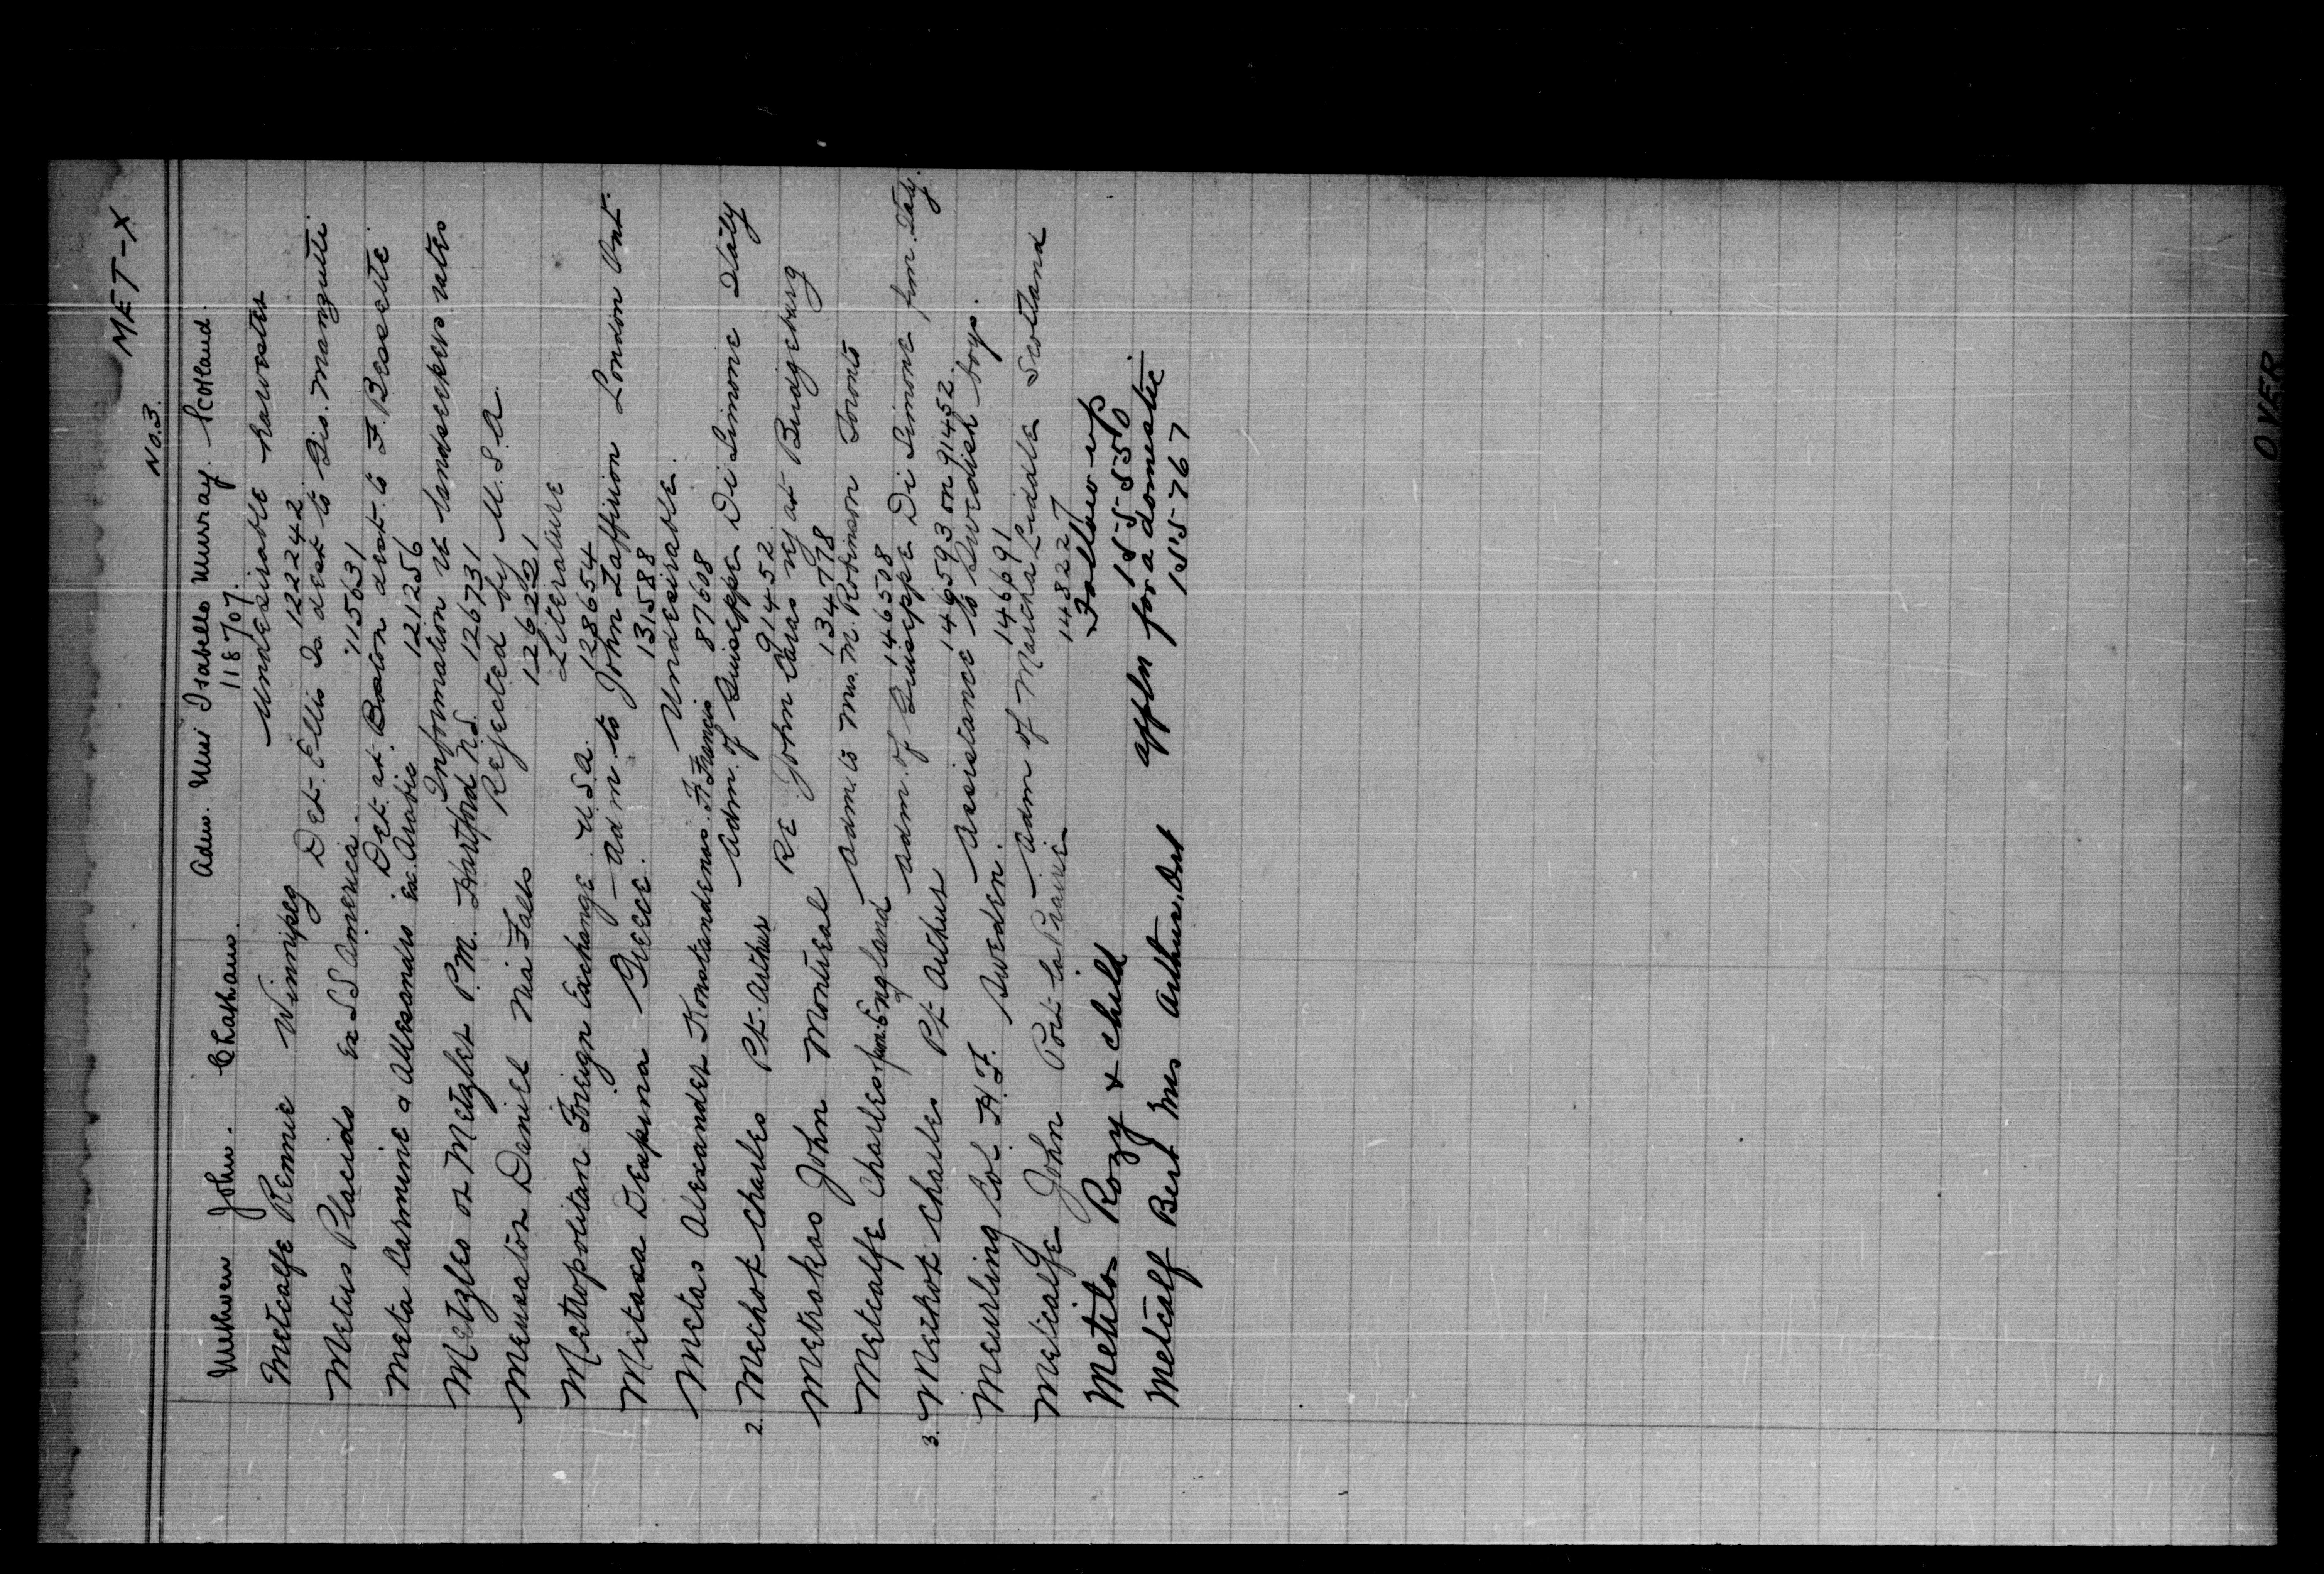 MET-X
No.3.
Methven John. Chatham. Adm. Miss Isabella Murray. Scotland
118707.
Metcalfe Rennie Winnipeg Undesirable harvester
122242
Metus Placido Ex SS America. Det. Ellis Is. dest to Gis. Manzutti
115631
Meta Carmine & Allesandro Ex. Arabic Det. at Boston dest. to F. Bessette
121256
Metzles or Metzler P.M. Hartford N.S. Information re landseekers rates
126731
Meusator Daniel Nia Falls Rejected by U.S.A.
126221
Metropolitan Foreign Exchange U.S.A. Literature
128654
Metaxa Despina Greece. Adm. to John Laffinion London Ont.
131588
Metas Alexander Konstandenos. Ft Francis Undesirable.
87608
2. Methot Charles Pt. Arthur Adm. of Guiseppe Di Simone Italy
91452
Metrakos John Montreal Re John Caras rej at Bridgeburg
134478
Metcalfe Charles from England Adm. to Mrs. M. Robinson Toronto
146508
3. Methot Charles Pt Arthur Adm. of Guiseppe Di Simone from Italy.
146593 on 91452.
Meurling Col. H.F. Sweden. Assistance to Swedish boys.
146691
Metcalfe John Port la Prairie Adm of Martha Liddle Scotland
148227
Metitos Rozy & child Follow up
155550
Metcalf Bert Mrs Arthur, Ont appln for a domestic
155767
OVER